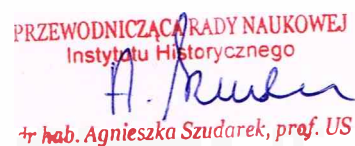 PRZEWODNICZĄCA RADY NAUKOWEJ
Instytutu Historycznego
hab. Agnieszka Szudarek, prof. US